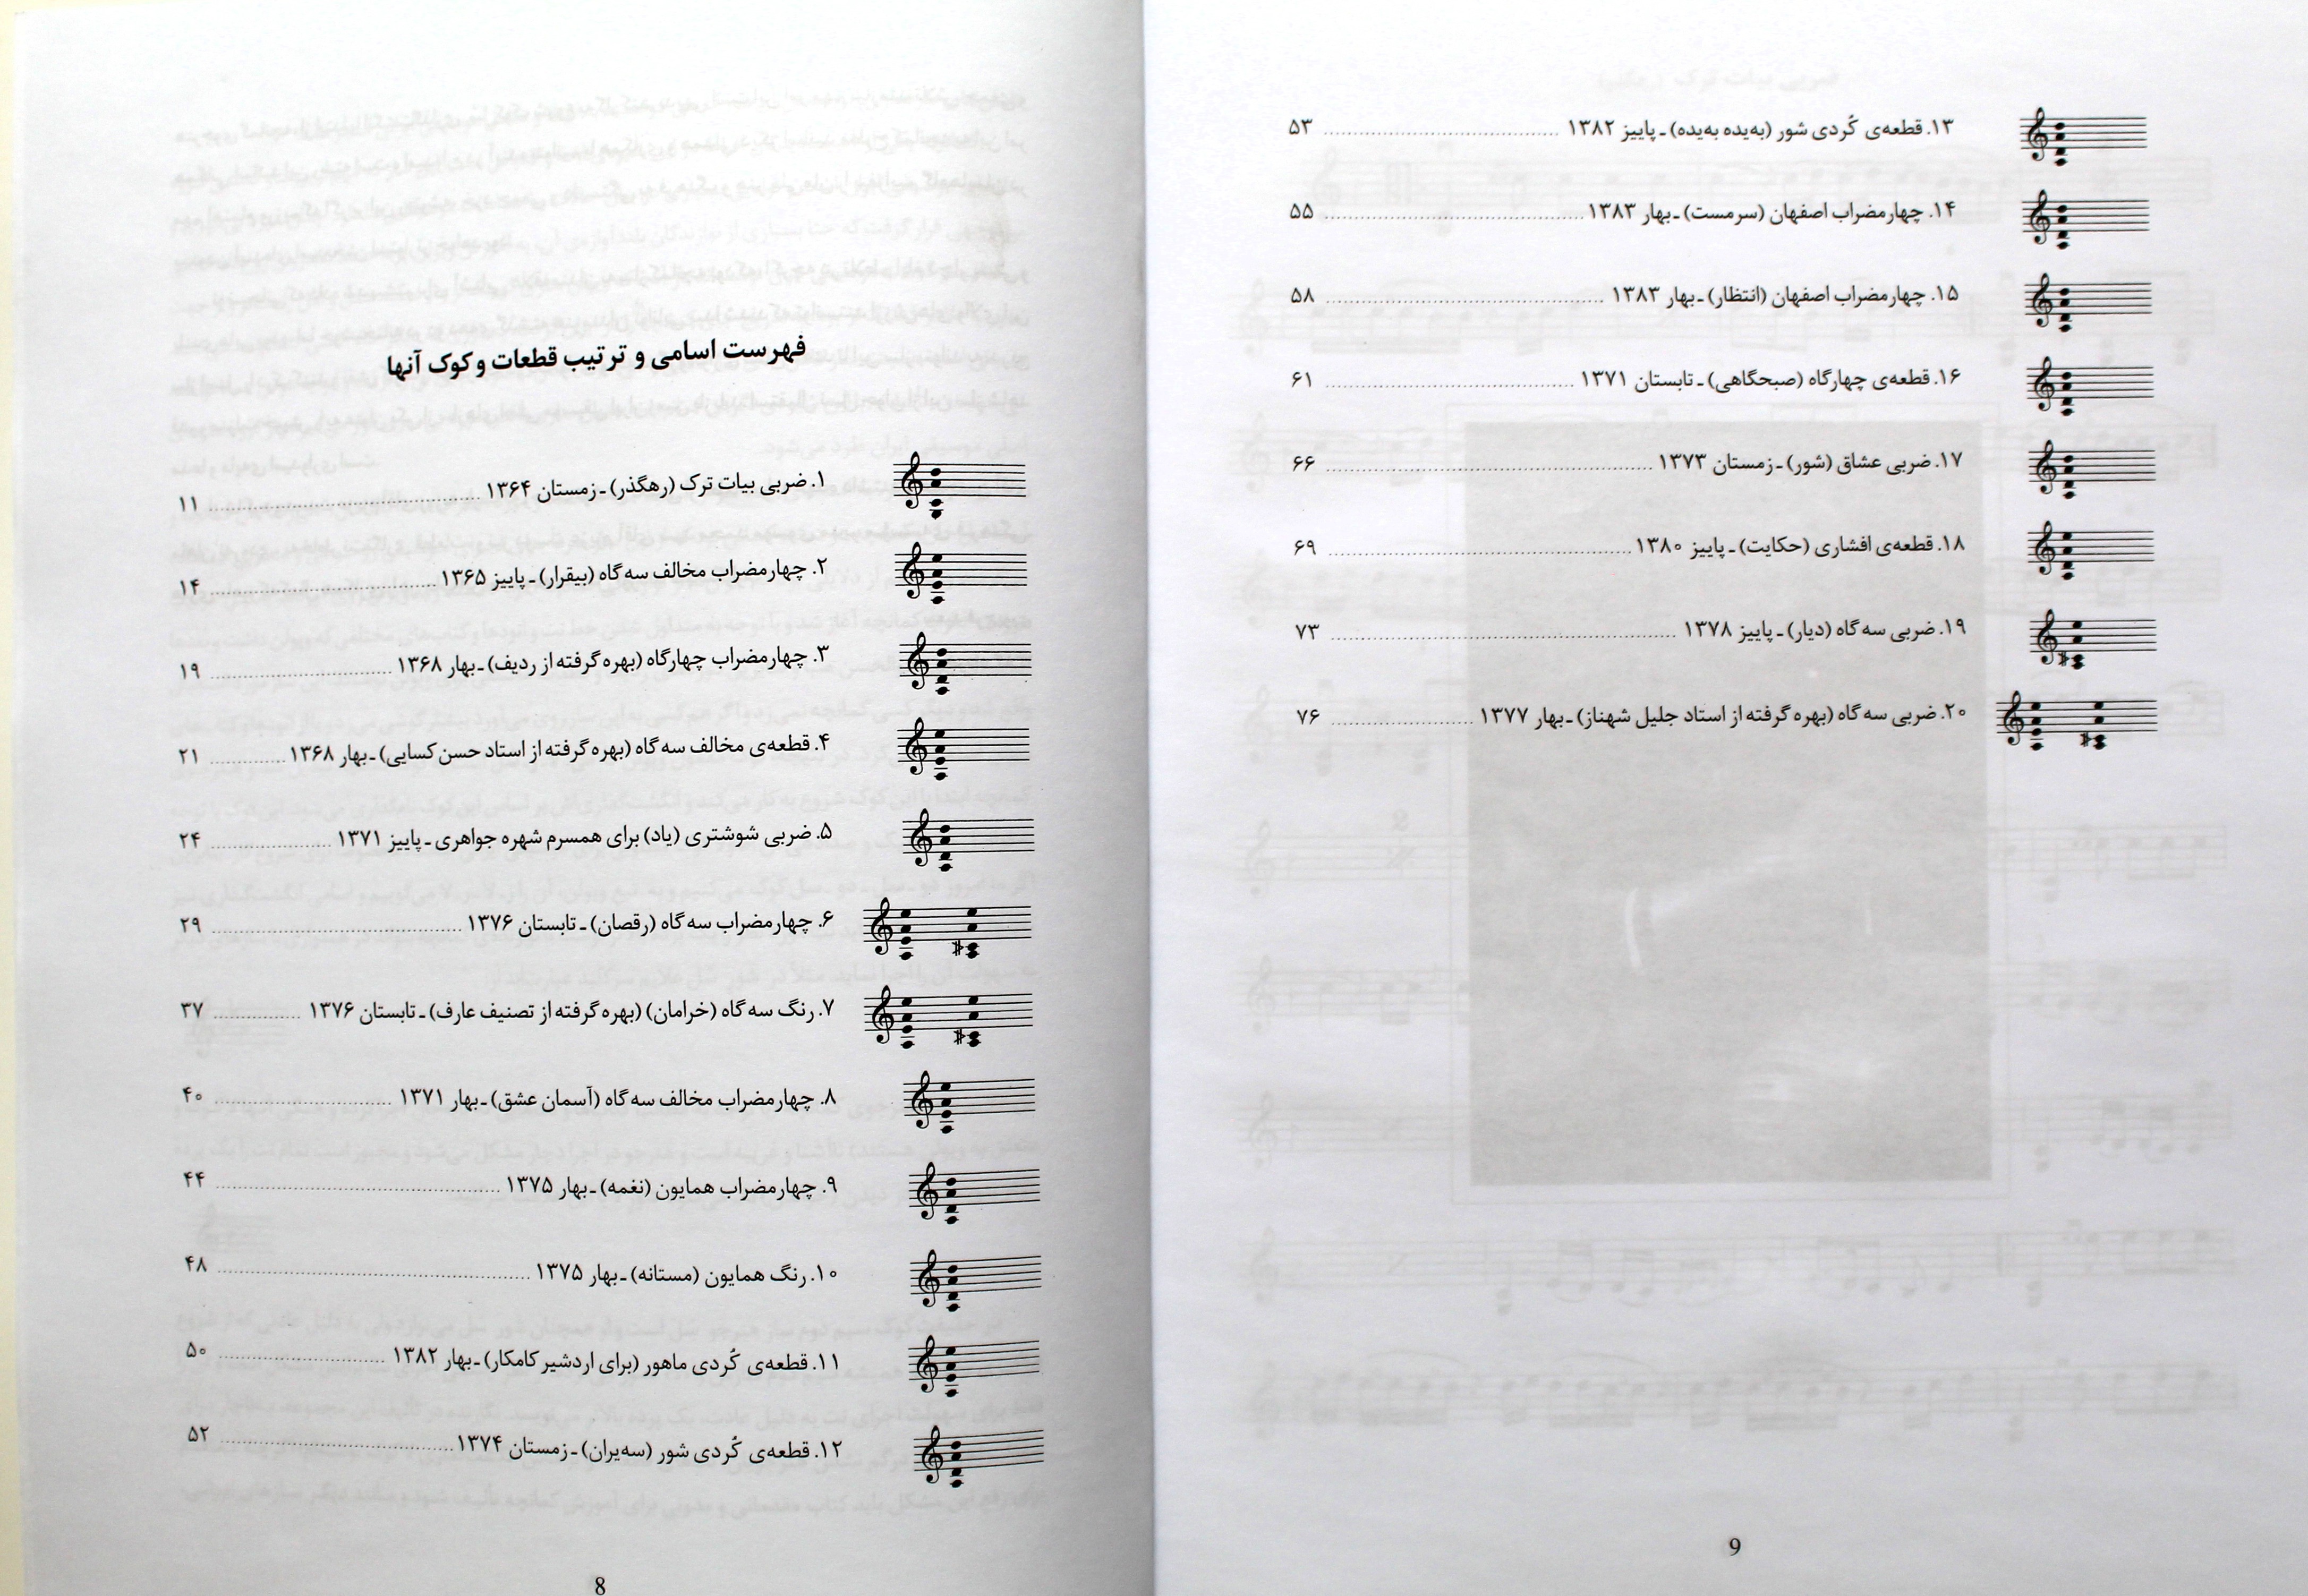 فهرست اسامی و ترتیب قطعات و کوک آنها
۱. ضربی بیات ترک (رهگذر) ـ زمستان ۱۳۶۴ ........ ۱۱
۲. چهارمضراب مخالف سه‌گاه (بیقرار) ـ پاییز ۱۳۶۵ ........ ۱۴
۳. چهارمضراب چهارگاه (بهره گرفته از ردیف) ـ بهار ۱۳۶۸ ........ ۱۹
۴. قطعه‌ی مخالف سه‌گاه (بهره گرفته از استاد حسن کسایی) ـ بهار ۱۳۶۸ ........ ۲۱
۵. ضربی شوشتری (یاد) برای همسرم شهره جواهری ـ پاییز ۱۳۷۱ ........ ۲۴
۶. چهارمضراب سه‌گاه (رقصان) ـ تابستان ۱۳۷۶ ........ ۲۹
۷. رنگ سه‌گاه (خرامان) (بهره گرفته از تصنیف عارف) ـ تابستان ۱۳۷۶ ........ ۳۷
۸. چهارمضراب مخالف سه‌گاه (آسمان عشق) ـ بهار ۱۳۷۱ ........ ۴۰
۹. چهارمضراب همایون (نغمه) ـ بهار ۱۳۷۵ ........ ۴۴
۱۰. رنگ همایون (مستانه) ـ بهار ۱۳۷۵ ........ ۴۸
۱۱. قطعه‌ی کُردی ماهور (برای اردشیر کامکار) ـ بهار ۱۳۸۲ ........ ۵۰
۱۲. قطعه‌ی کُردی شور (سه‌یران) ـ زمستان ۱۳۷۴ ........ ۵۲
8
۱۳. قطعه‌ی کُردی شور (به‌یده به‌یده) ـ پاییز ۱۳۸۲ ........ ۵۳
۱۴. چهارمضراب اصفهان (سرمست) ـ بهار ۱۳۸۳ ........ ۵۵
۱۵. چهارمضراب اصفهان (انتظار) ـ بهار ۱۳۸۳ ........ ۵۸
۱۶. قطعه‌ی چهارگاه (صبحگاهی) ـ تابستان ۱۳۷۱ ........ ۶۱
۱۷. ضربی عشاق (شور) ـ زمستان ۱۳۷۳ ........ ۶۶
۱۸. قطعه‌ی افشاری (حکایت) ـ پاییز ۱۳۸۰ ........ ۶۹
۱۹. ضربی سه‌گاه (دیار) ـ پاییز ۱۳۷۸ ........ ۷۳
۲۰. ضربی سه‌گاه (بهره گرفته از استاد جلیل شهناز) ـ بهار ۱۳۷۷ ........ ۷۶
9